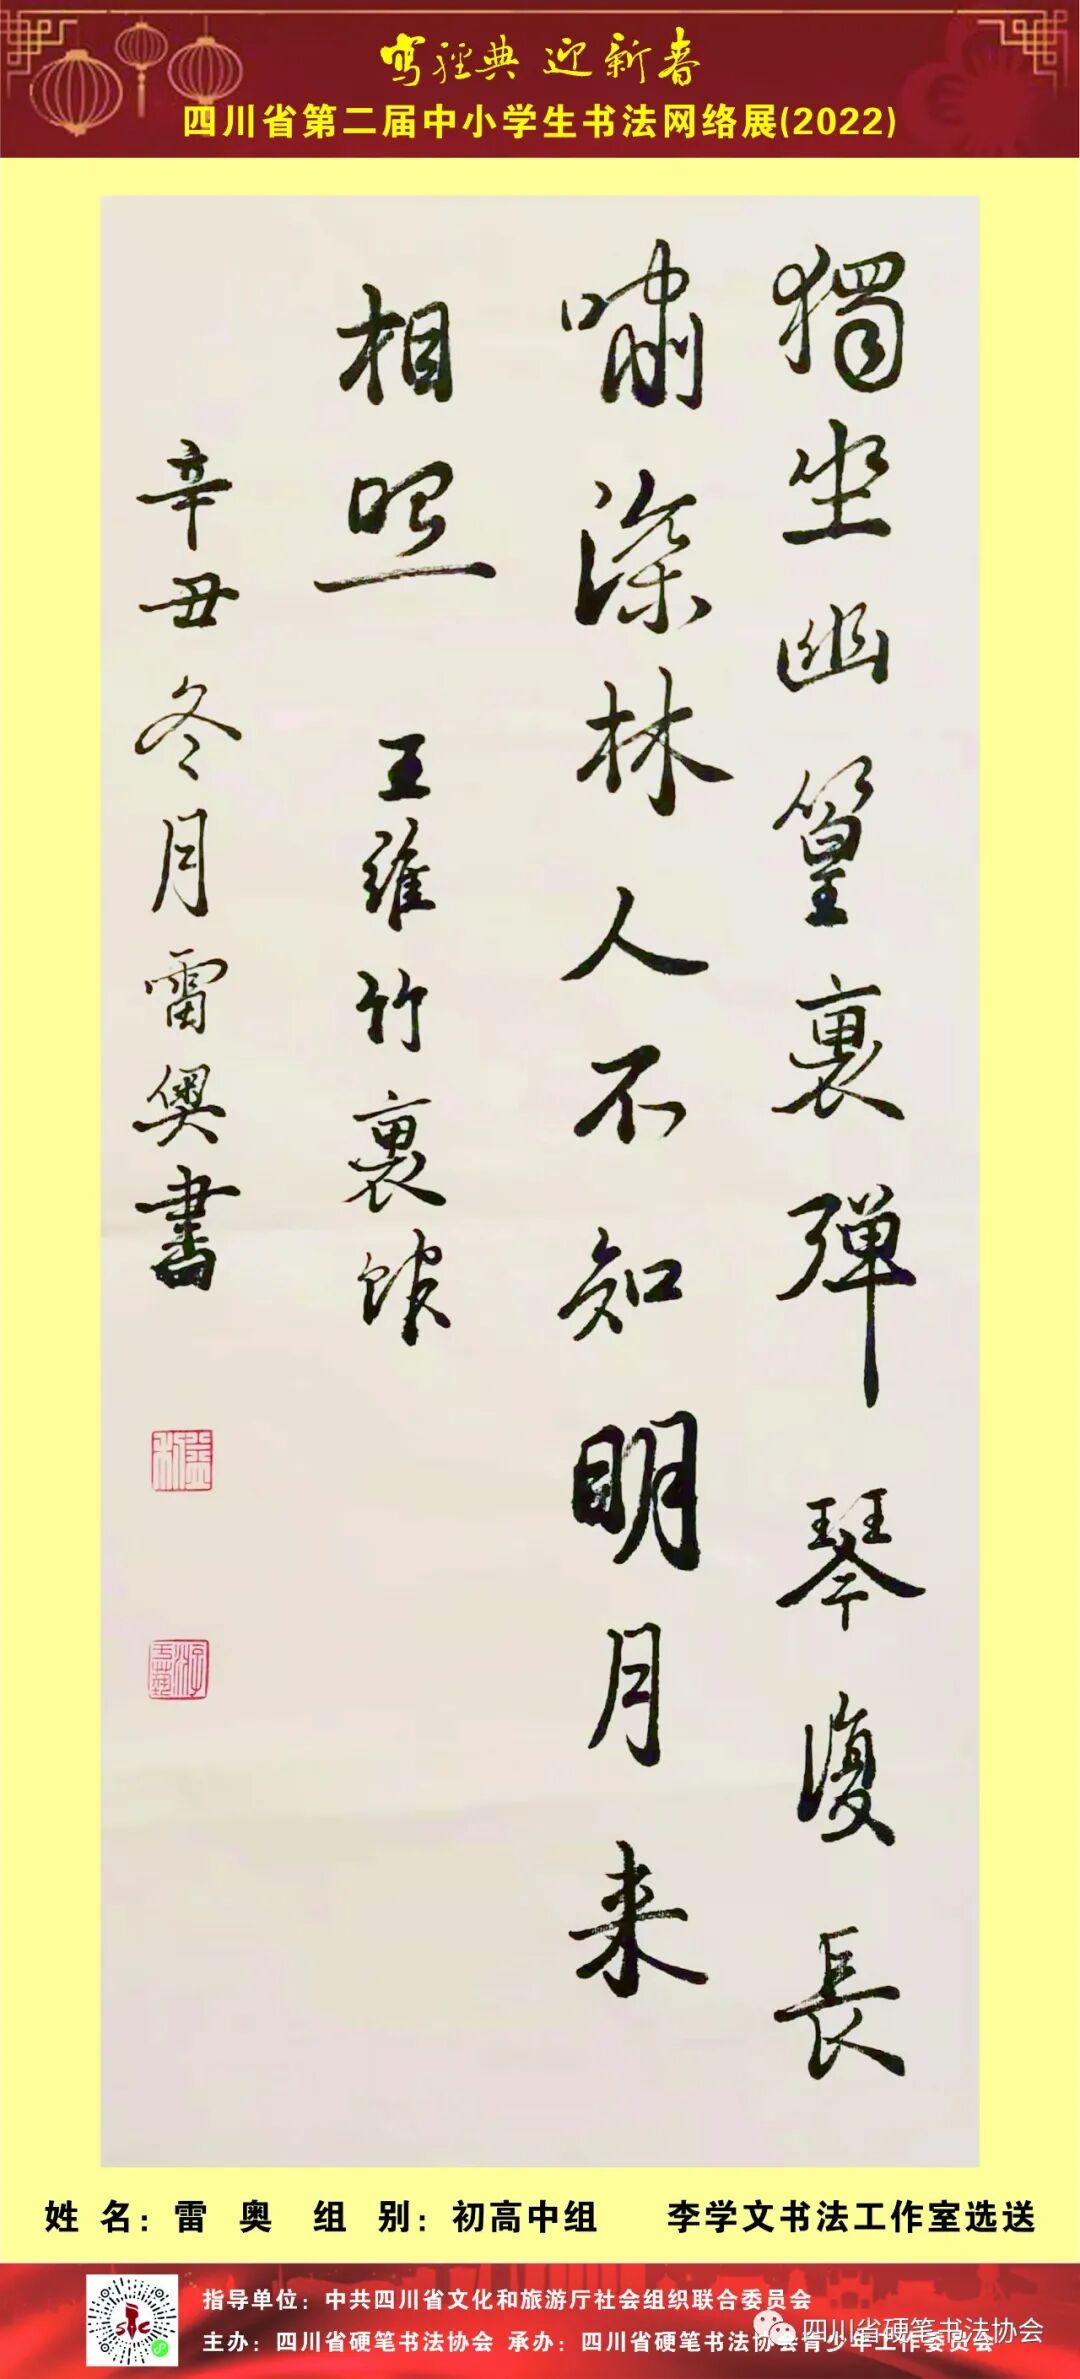 写经典 迎新春
四川省第二届中小学生书法网络展(2022)
獨坐幽篁裏弹琴復長
嘯深林人不知明月来
相照 王維竹裏館
辛丑冬月雷奥書
姓 名：雷 奥 组 别：初高中组 李学文书法工作室选送
指导单位：中共四川省文化和旅游厅社会组织联合委员会
主办：四川省硬笔书法协会 承办：四川省硬笔书法协会青少年工作委员会
四川省硬笔书法协会